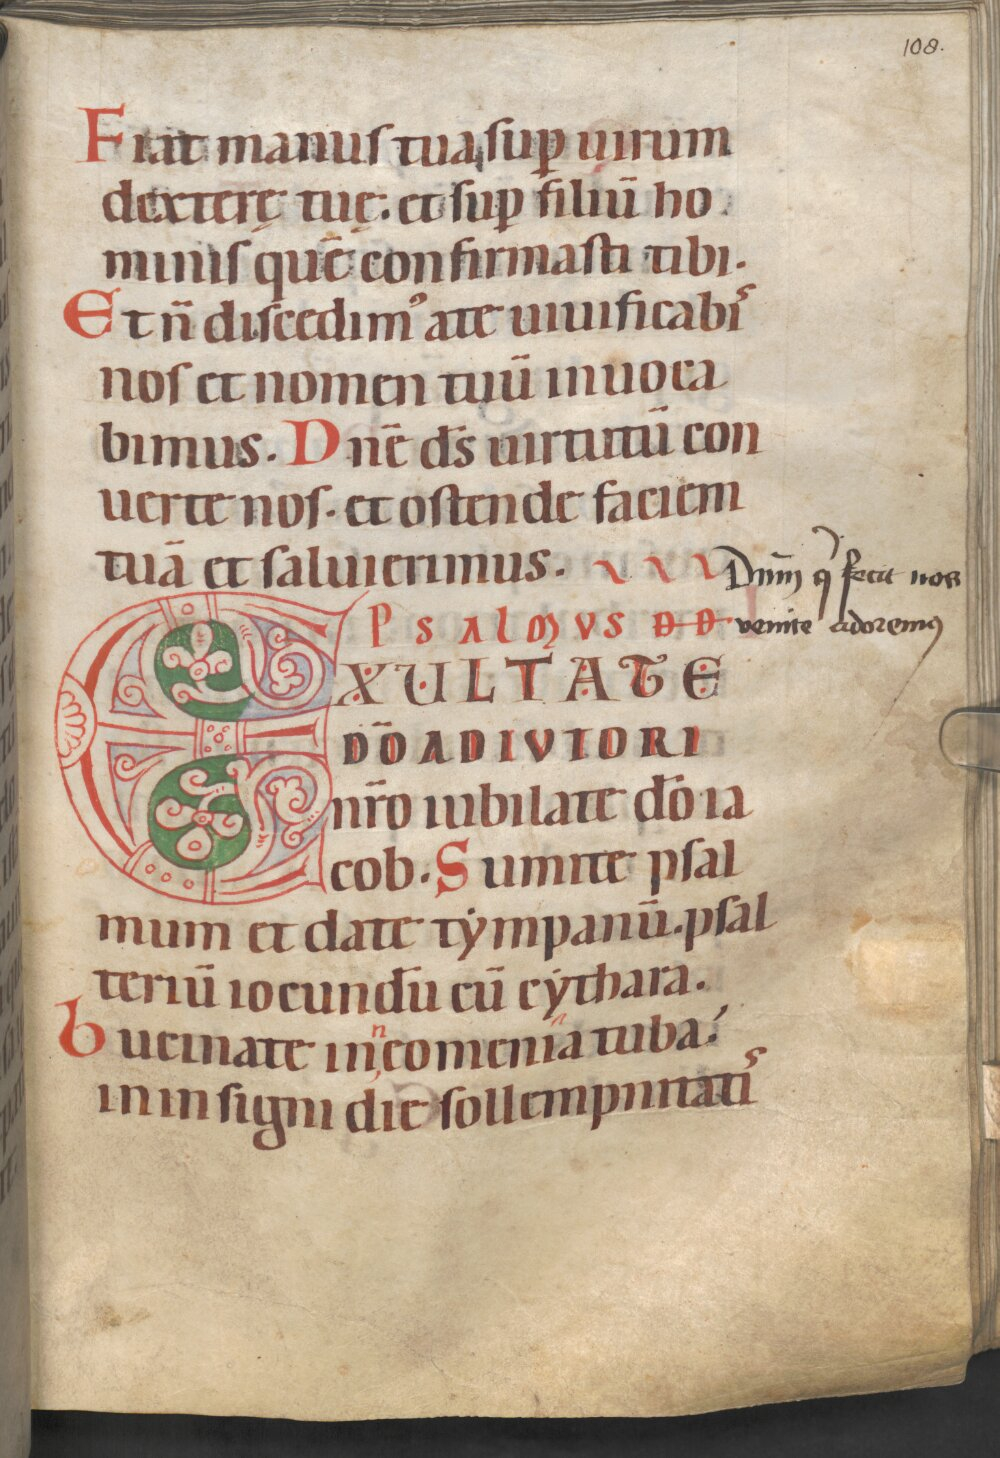 108.
Fiat manus tua sup̱ uirum
dexterę tuę. et sup̱ filiū ho
minis quē confirmasti tibi.
Et n̄ discedimꝰ ate uiuificabis
nos et nomen tuū inuoca
bimus. Dnē d̄s uirtutū con
uerte nos. et ostende faciem
tuā et salui erimus.
Dn̄m q̄ fecit nos
PSALMVS DD
venite adoremꝰ
EXULTATE
DŌO ADIVTORI
nr̄o iubilate d̄o ia
cob. Sumite psal
mum et date tẏmpanū. psal
teriū iocundū cū cẏthara.
Bucinate in ncomenia tuba.
in insigni die sollempnitatis